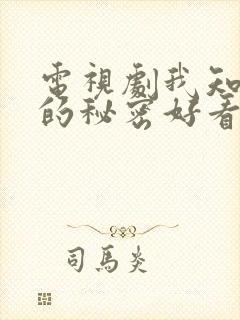 電視劇我知
的秘密好看
司馬炎